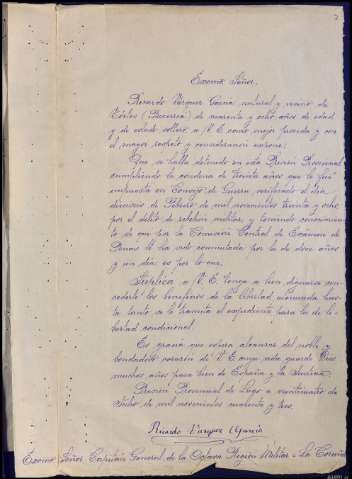 Excmo. Señor.
Ricardo Vazquez Garcia natural y vecino de
(Becerreá) de cuarenta y ocho años de edad
y de estado soltero a V. E. como mejor proceda y con
el mayor respeto y consideracion expone:
Que se halla detenido en esta Prision Provincial
cumpliendo la condena de Treinta años que le fué
impuesta en Consejo de Guerra verificado el dia
de Febrero de mil novecientos treinta y ocho
por el delito de rebelion militar, y teniendo conocimiento
de que por la Comision Central de Examen de
Penas le ha sido conmutada por la de doce años
y un dia es por lo que
Suplica a V. E. tenga a bien dignarse con-
cederle los beneficios de la libertad atenuada has-
ta tanto se le tramita el expediente para la de li-
bertad condicional.
Es gracia que espera alcanzar del noble y
bondadoso corazón de V. E. cuya vida guarde Dios
muchos años para bien de España y la Justicia.
Prisión Provincial de Lugo a veinticuatro de
Julio de mil novecientos cuarenta y tres.
Ricardo Vazquez Garcia
Excmo. Señor Capitán General de la Octava Región Militar = La Coruña